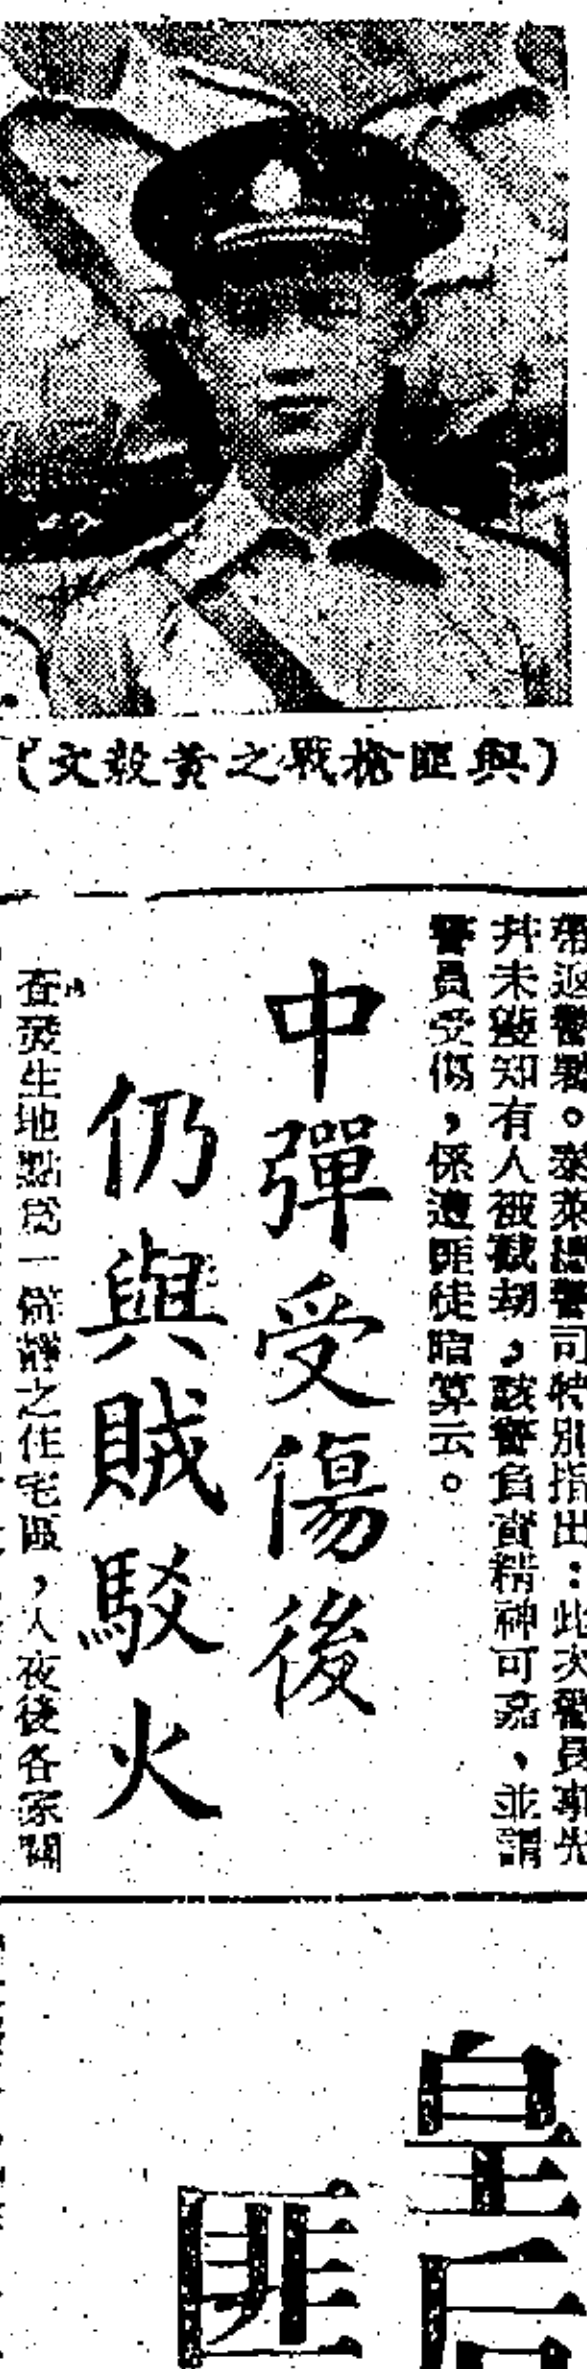 (與匪槍戰之黃毅文)
帶返警署。泰萊總警司特別指出:此次警員事先
并未獲知有人被截刧,該警負責精神可嘉、並謂
警員受傷,係遭匪徒暗算云。
中彈受傷後
仍與賊駁火
查發生地點為一僻靜之住宅區,入夜後各家關
皇后
匪